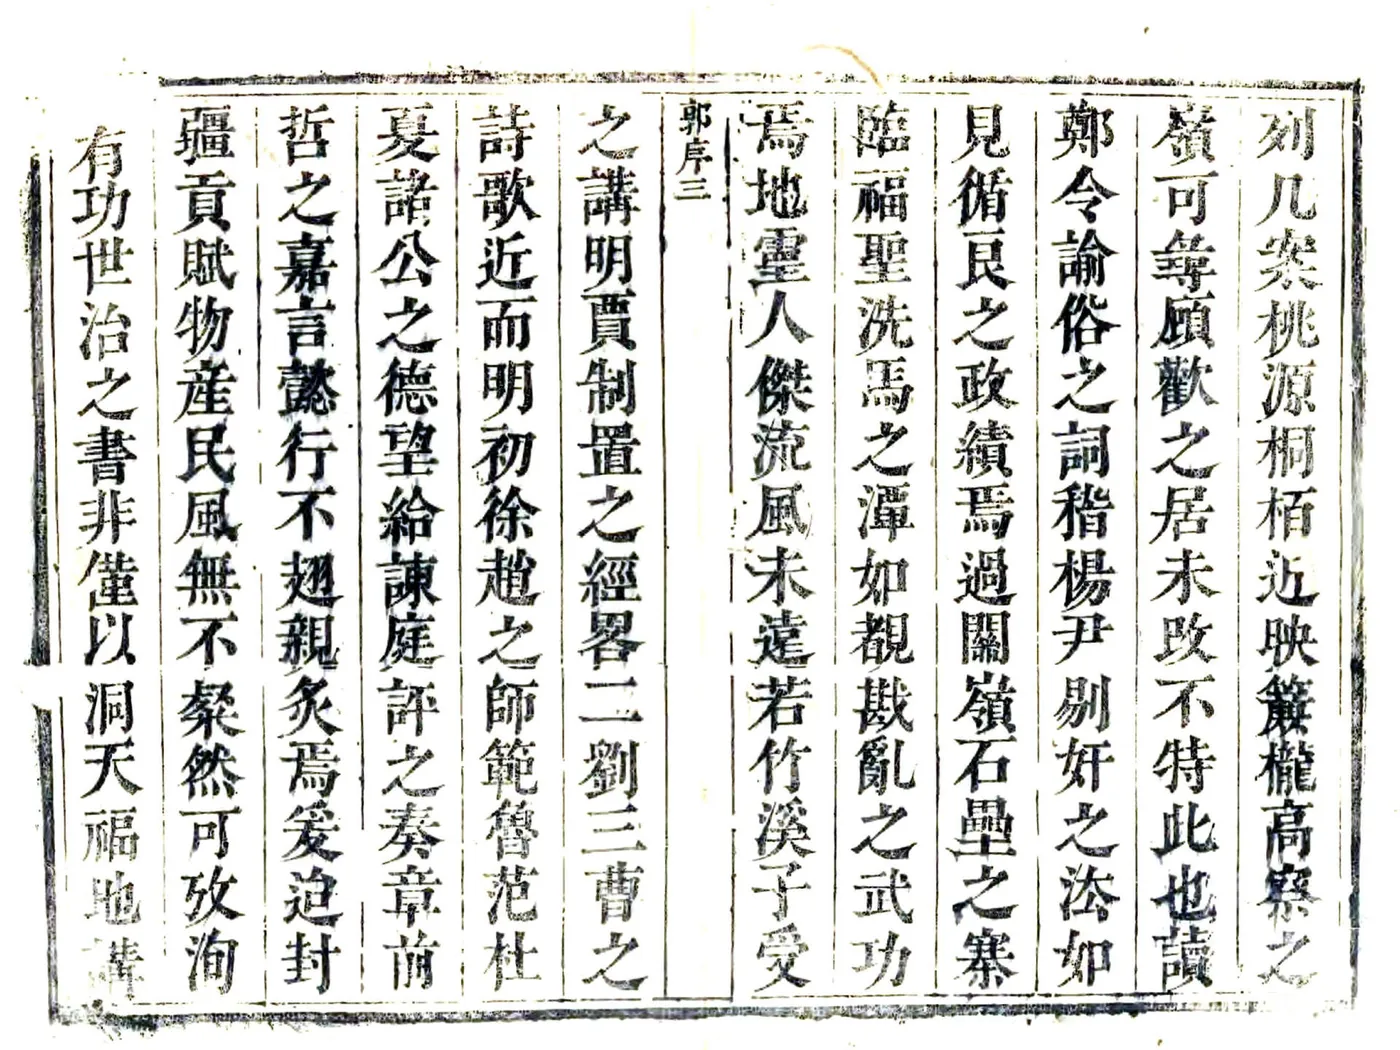 列几案桃源桐栢近映簾櫳高察之
嶺可尋顧歡之居未改不特此也讀
鄭令諭俗之詞稽楊尹剔奸之法如
見循良之政績焉過關嶺石壘之寨
臨福聖洗馬之潭如覩戡亂之武功
焉地靈人傑流風未遠若竹溪子受
郭序三
之講明賈制置之經畧二劉三曹之
詩歌近而明初徐趙之師範魯范杜
夏諸公之德望給諫庭評之奏章前
哲之嘉言懿行不翅親炙焉爰迨封
疆貢賦物産民風無不粲然可攷洵
有功世治之書非僅以洞天福地講